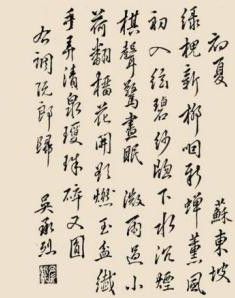 初夏 蘇東坡
緑槐新柳咽新蟬薰風
初入弦碧紗牕下水沉煙
棋聲驚晝眠 微雨過小
荷翻榴花開欲燃玉盆纖
手弄清泉瓊珠碎又圓
右調阮郎歸 吳承烈